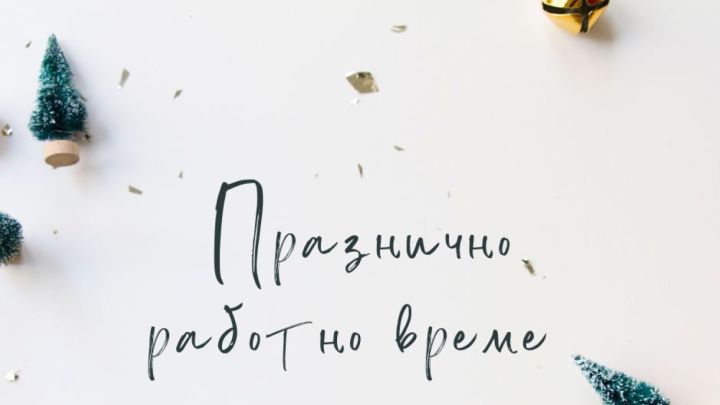 Празнично
работно време